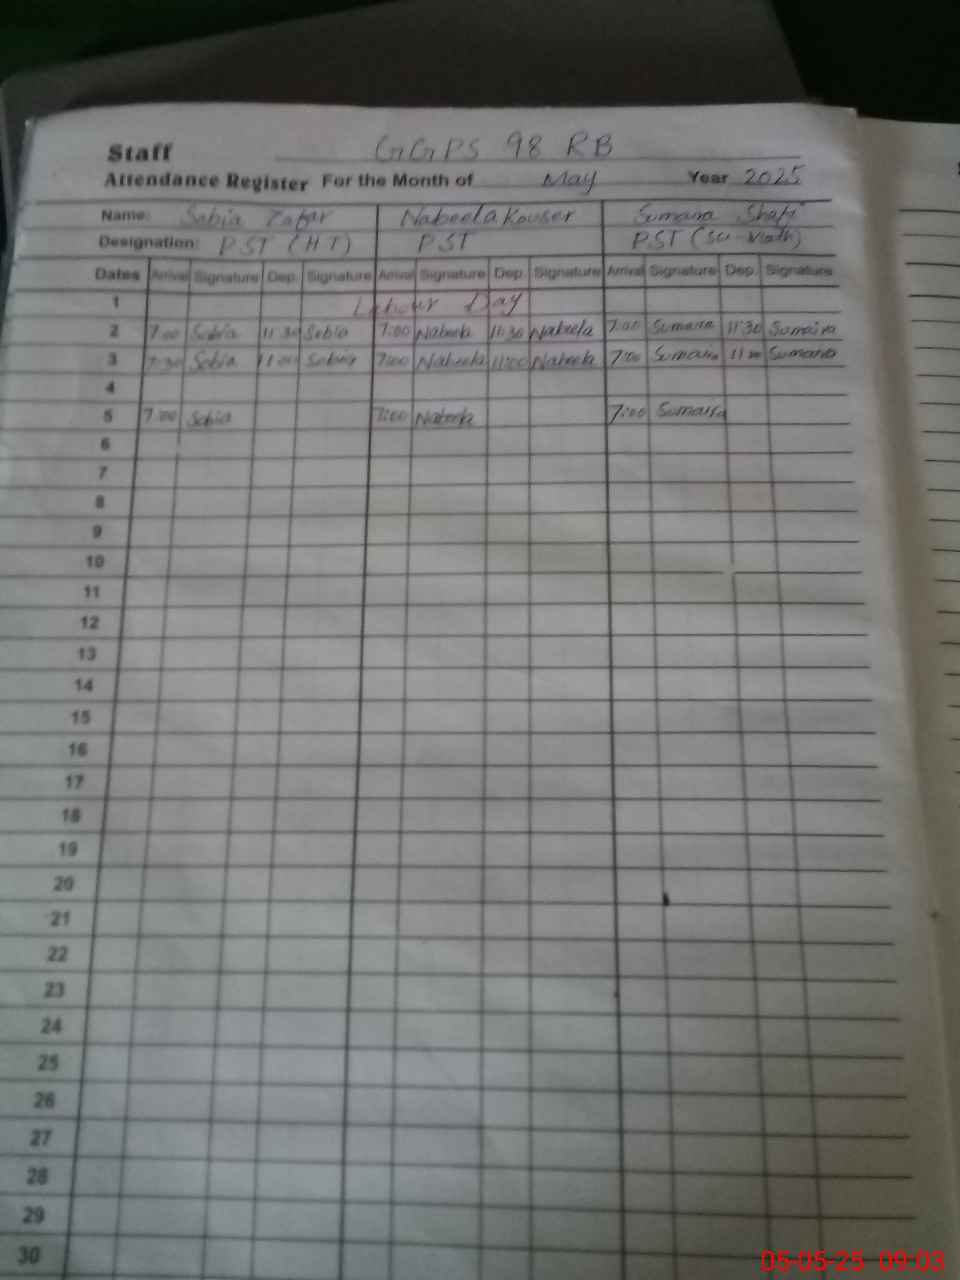 Staff GGPS 98 RB
Attendance Register For the Month of May Year 2025
Name: Sobia Zafar Nabeela Kouser Sumaira Shafi
Designation: PST (HT) PST PST (Sci-Math)
Dates Arrival Signature Dep. Signature Arrival Signature Dep. Signature Arrival Signature Dep. Signature
1 Labour Day
2 7:00 Sobia 11:30 Sobia 7:00 Nabeela 11:30 Nabeela 7:00 Sumaira 11:30 Sumaira
3 Sobia 11:00 Sobia 7:00 Nabeela 11:00 Nabeela 7:00 Sumaira 11:00 Sumaira
4
5 7:00 Sobia 7:00 Nabeela 7:00 Sumaira
6
7
8
9
10
11
12
13
14
15
16
17
18
19
20
21
22
23
24
25
26
27
28
29
30
05-05-25 09:03